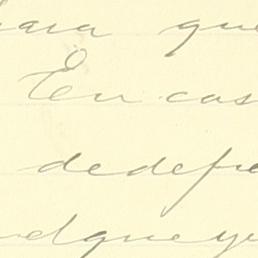 para que
En cas
dedefe
elqueye